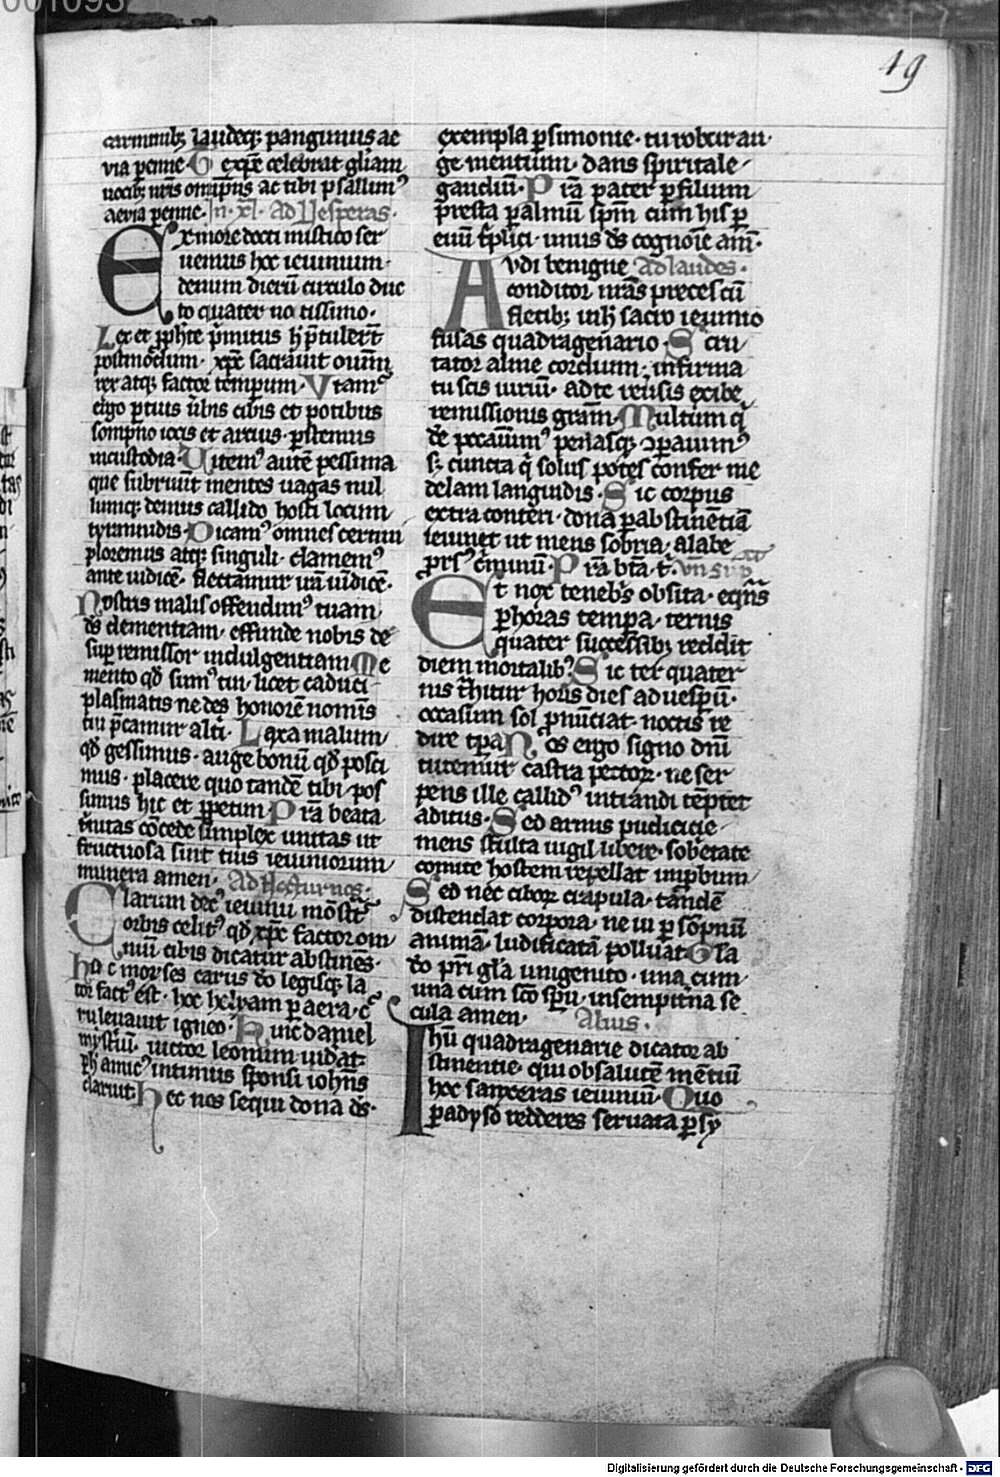 001093
19
carminibꝫ laudeqꝫ pangimus ac
via penne· T expͤ celebrat gl̄iam
nocibꝫ nr̄is om̄ip̄ns ac tibi psallim᷒
aevia perenne· In· xl· Ad Uesperas·
Ex more docti mistico ser
uemus hoc ieiunium·
denum dierū circulo duc
to quater notissimo·
Lex et ꝓph̄te p̄mitus h̄ p̄tuler̄t
postmodum· xpͤ sacrauit oīum
rex atqꝫ factor temporum· Vtam᷒
ergo ꝑtius ūbis cibis et potibus
sompno iocis et arcius· ꝑstemus
in custodia· Uitem᷒ autē pessima
que subruūt mentes uagas nul
lumqꝫ demus callido hosti locum
tyrannidis· Dicam᷒ omnes cernui
ploremus atqꝫ singuli· clamem᷒
ante iudicē· flectamur irā uīdicē·
Nostris malis offendim᷒ tuam
ds̄ clementiam· effunde nobis de
suꝑ remissor indulgentiam Me
mento qd̄ sum᷒ tui· licet caduci
plasmatis ne des honorē nominis
tui p̄camur alt̄i· Laxa malum
qd̄ gessimus· auge bonū qd̄ posci
mus· placere quo tandē tibi· pos
simus hic et ꝑpetim· Pr̄a beata
t̄nitas cōcede simplex unitas ut
fructuosa sint tuis ieiuniorum
munera amen· Ad Nocturnos·
Clarum dec᷒ ieiunii mōst̄t᷒
orbis celit᷒ qd̄ xpͤ factor om
niū cibis dicatur abstinēs·
hoc moyses carus d̄o legisqꝫ la
tor fact᷒ est· hoc helyam ꝑ aera· c᷒
ru leuauit igneo· Huic daniel
mysteriū· uictor leonum uidit·
ꝑh amic᷒ intimus sponsi ioh̄ns
claruit· hec nos sequi dona ds̄·
exempla ꝑsimonie· tu robur au
ge mentium· dans spiritale
gaudiū· Pr̄a pater ꝑ filium
presta ꝑ almū sp̄m cum his ꝑ
euū t̄plici· unus ds̄ cognoīe am̄·
Audi benigne Ad laudes·
conditor nr̄as preces cū
fletibꝫ in h̄ sacro ieiunio
fusas quadragenario· Scru
tator alme cordium· infirma
tu scis uiriū· ad te reūsis exibe
remissionis grām· Multum q̄
de peccauim᷒ penasqꝫ ꝯparauim᷒
sꝫ cuncta q̄ solus potes confer me
delam languidis· Sic corpus
extra conteri· dona ꝑ abstinētiā
ieiunet ut mens sobria· a labe
prs᷒ c̄minū· Pr̄a bt̄a· t̄·
Et nox tenebris obsita· eq̄ns
ꝑ horas tempa· ternis
quater successibꝫ reddit
diem mortalib᷒· Sic ter quater
nis t̄hitur horis dies ad uesꝑū·
occasum sol pnūtiat· noctis re
dire tp̄a Nos ergo signo dn̄i
tutemur castra pectorꝝ· ne ser
pens ille callid᷒ intrandi tēptet
aditus· Sed armis pudicicie
mens fulta uigil libere· sobrietate
comite hostem repellat īnpbum
Sed nec ciborꝝ crapula· tandē
distendat corpora· ne ui ꝑ sōpnū
animā· ludificatā polluat· Gl̄a
d̄o pr̄i gl̄a unigenito· una cum
una cum sc̄o spū· in sempit̄na se
cula amen· Alius·
Ihū quadragenarie dicator ab
stinentie· qui ob salutē mētiū
hoc sanxeras ieiuniū· Quo
ꝑadyso redderes seruata ꝑ sy
Digitalisierung gefördert durch die Deutsche Forschungsgemeinschaft - DFG